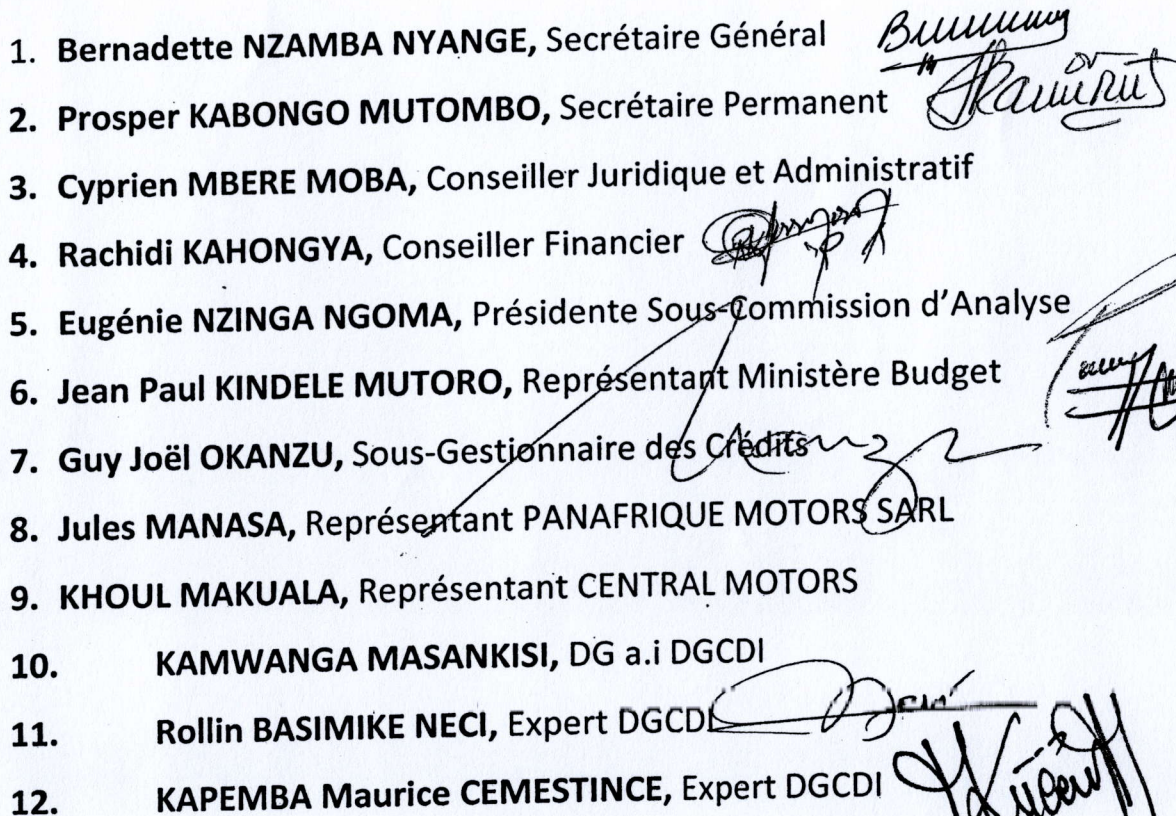 1. Bernadette NZAMBA NYANGE, Secrétaire Général
2. Prosper KABONGO MUTOMBO, Secrétaire Permanent
3. Cyprien MBERE MOBA, Conseiller Juridique et Administratif
4. Rachidi KAHONGYA, Conseiller Financier
5. Eugénie NZINGA NGOMA, Présidente Sous-Commission d’Analyse
6. Jean Paul KINDELE MUTORO, Représentant Ministère Budget
7. Guy Joël OKANZU, Sous-Gestionnaire des Crédits
8. Jules MANASA, Représentant PANAFRIQUE MOTORS SARL
9. KHOUL MAKUALA, Représentant CENTRAL MOTORS
10. KAMWANGA MASANKISI, DG a.i DGCDI
11. Rollin BASIMIKE NECI, Expert DGCDI
12. KAPEMBA Maurice CEMESTINCE, Expert DGCDI